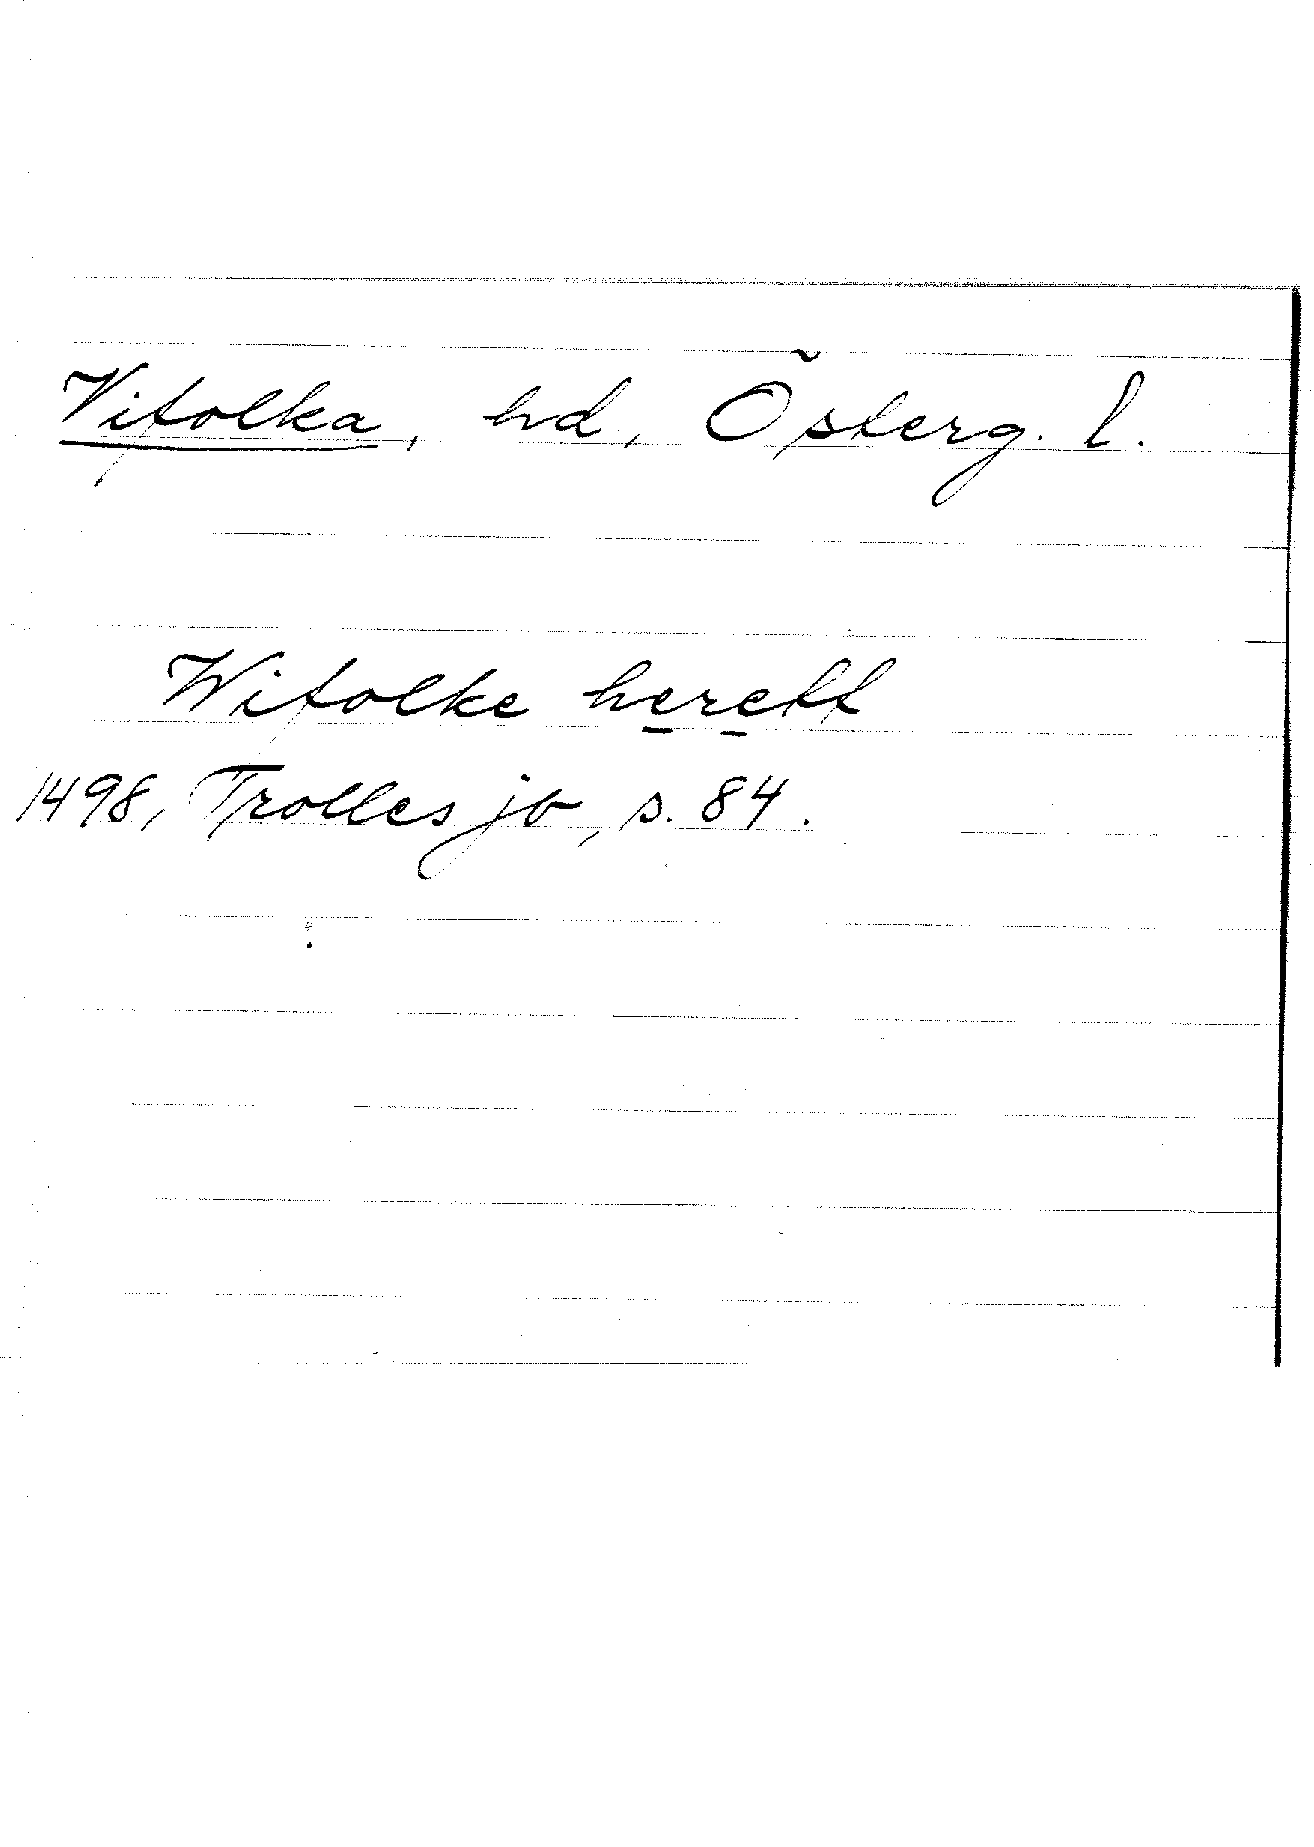 Vifolka, hd, Österg. l.
Wifolke herett
1498, Trolles jb, s. 84.